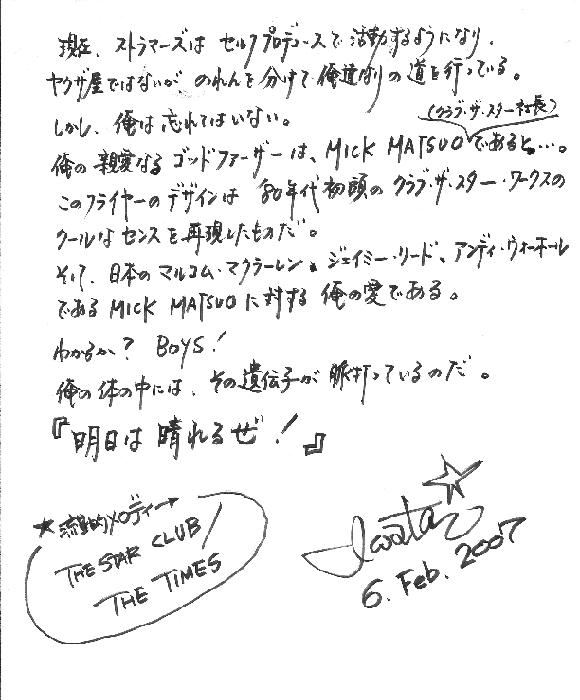 現在、ストラマーズは セルフプロデュースで活動するようになり、
ヤクザ屋ではないが のれんを分けて俺達なりの道を行っている。
しかし、俺は忘れてはいない。
(クラブ・ザ・スター社長)
俺の親愛なる ゴッドファーザーは、MICK MATSUOであると…。
このフライヤーのデザインは 80年代初頭の クラブ・ザ・スター・ワークスの
クールなセンスを再現したものだ。
そして、日本のマルコム・マクラーレン、ジェイミー・リード、アンディ・ウォーホール
である MICK MATSUOに対する 俺の愛である。
わかるか? BOYS!
俺の体の中には、その遺伝子が 脈打っているのだ。
『明日は 晴れるぜ!』
★ 的メロディー→
THE STAR CLUB/
THE TIMES
Iwata
6. Feb. 2007